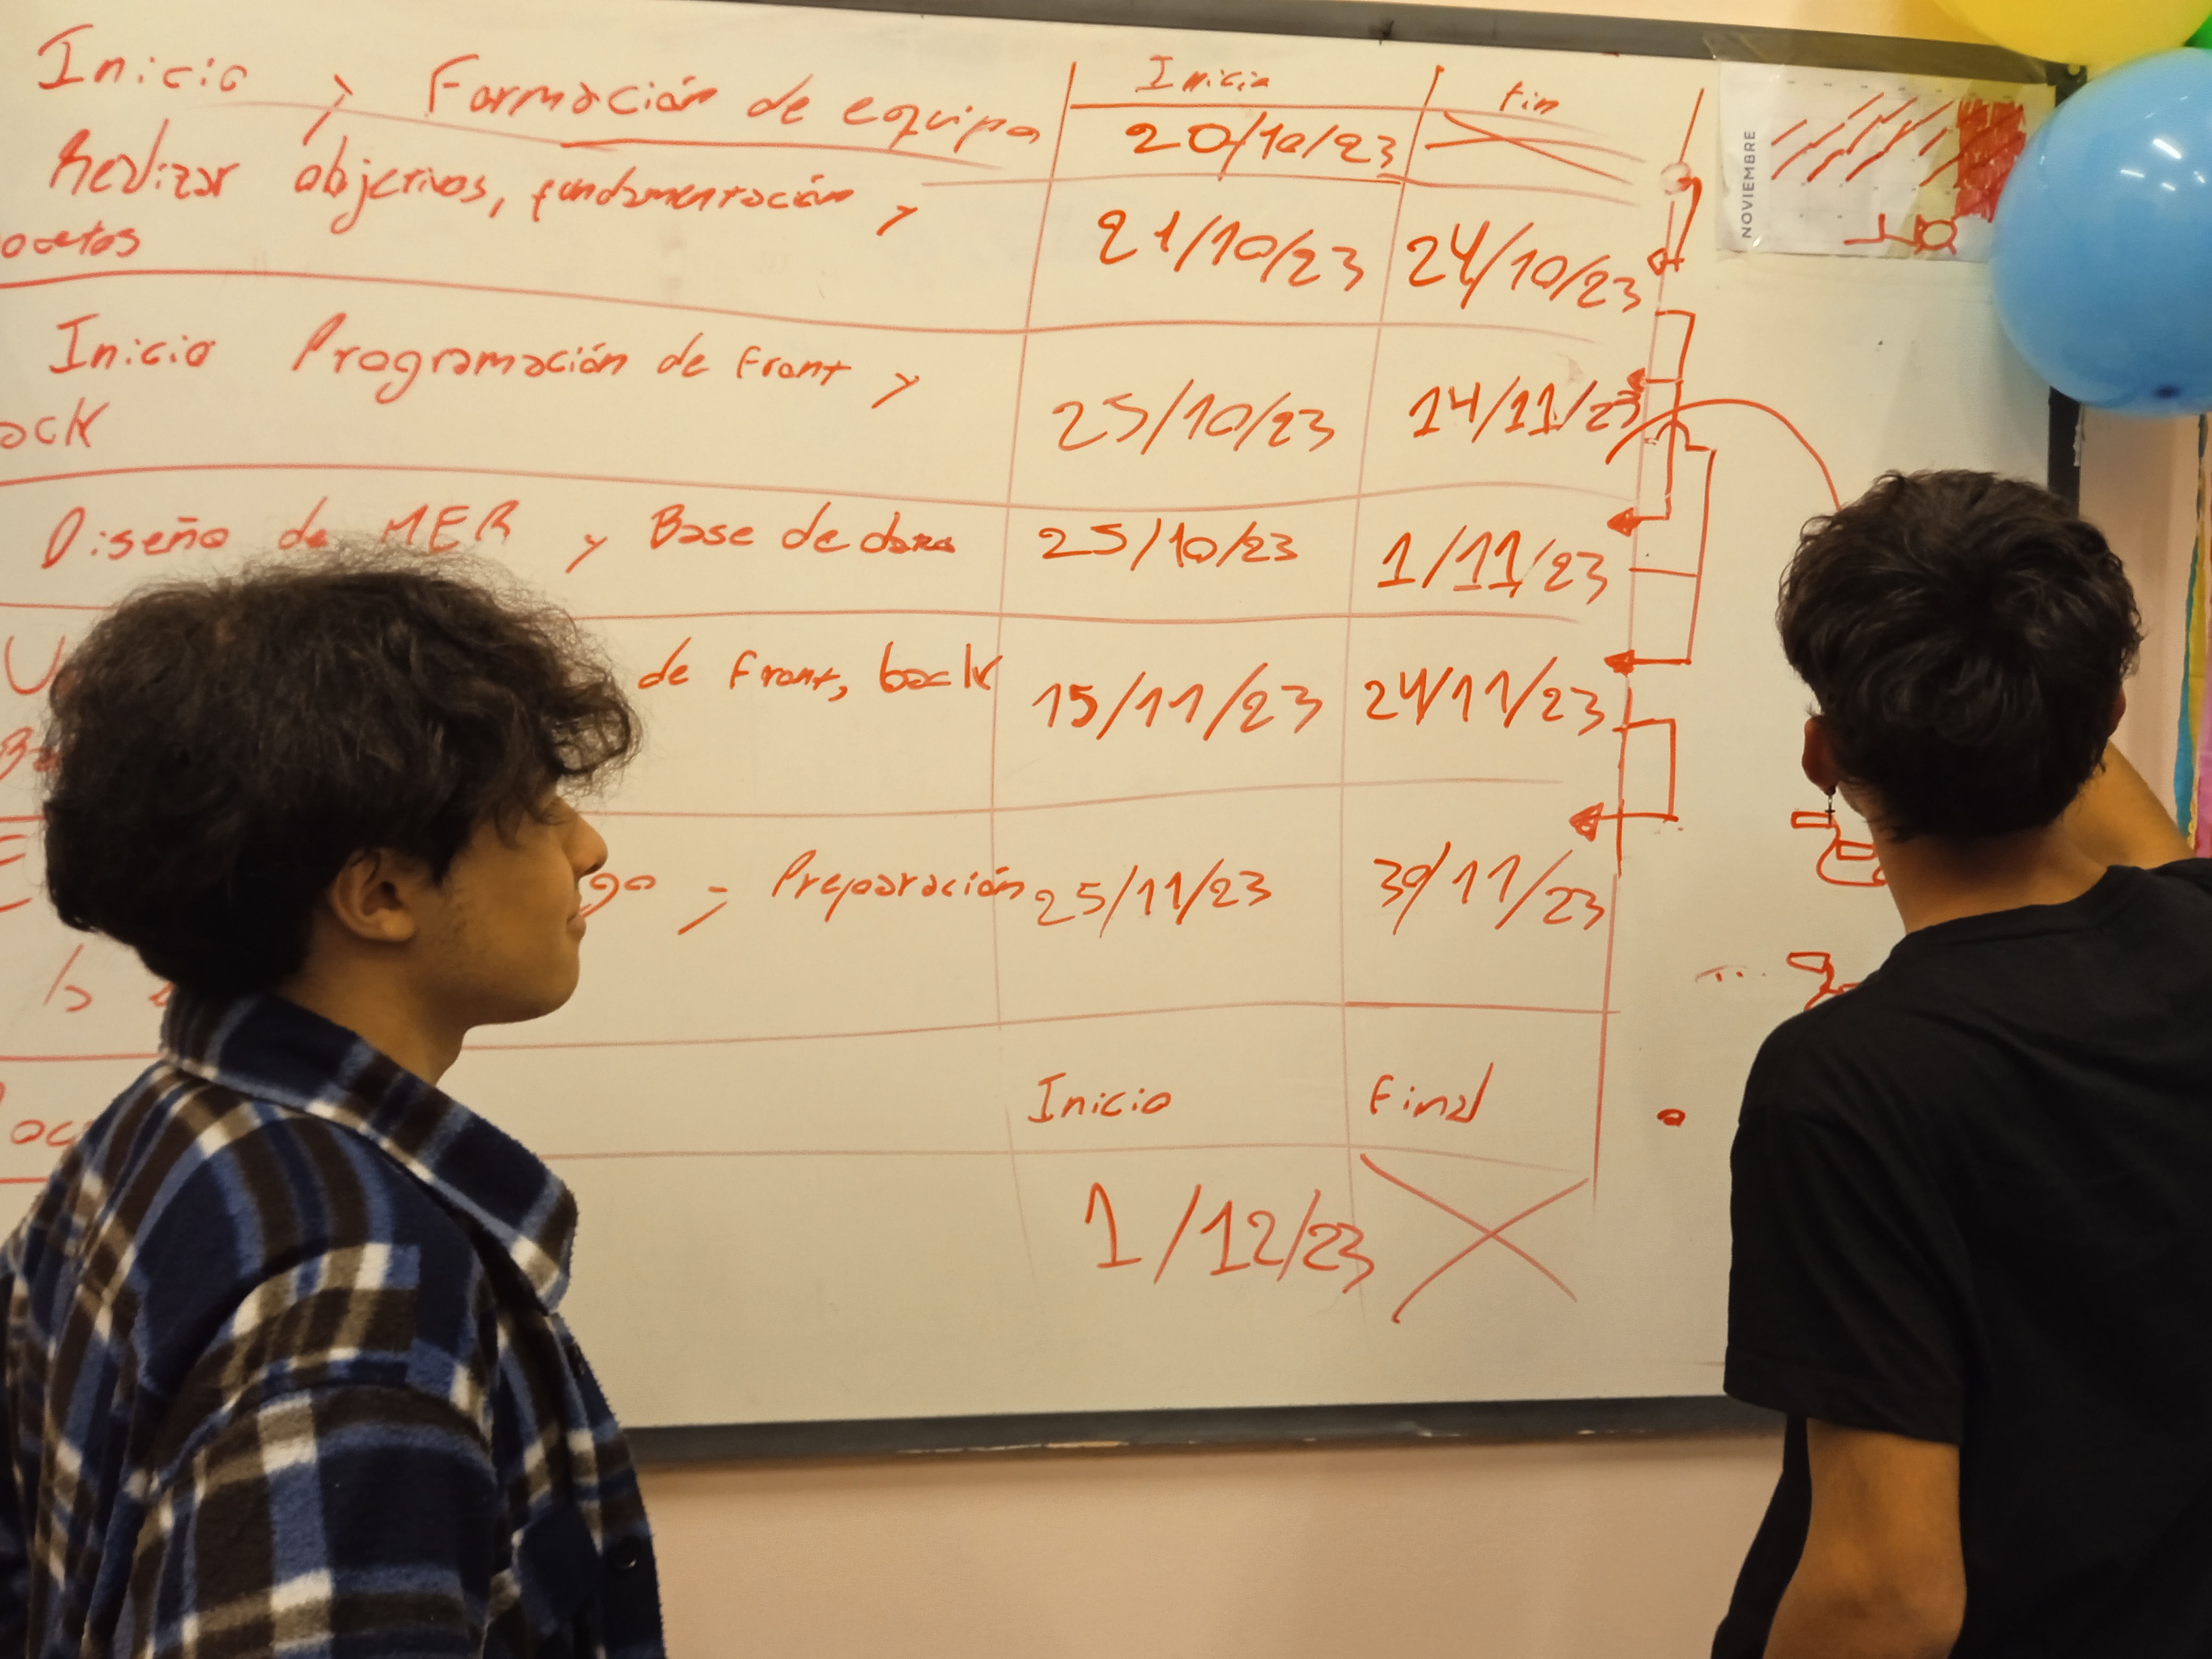 Inicio y Formación de equipo
Inicio
Fin
20/10/23
Realizar objetivos, fundamentación y
21/10/23
24/10/23
Inicio Programación de Front y
25/10/23
14/11/23
Diseño de MER y Base de datos
25/10/23
1/11/23
de Front, back
15/11/23
24/11/23
Preparación
25/11/23
30/11/23
Inicio
Final
1/12/23
NOVIEMBRE